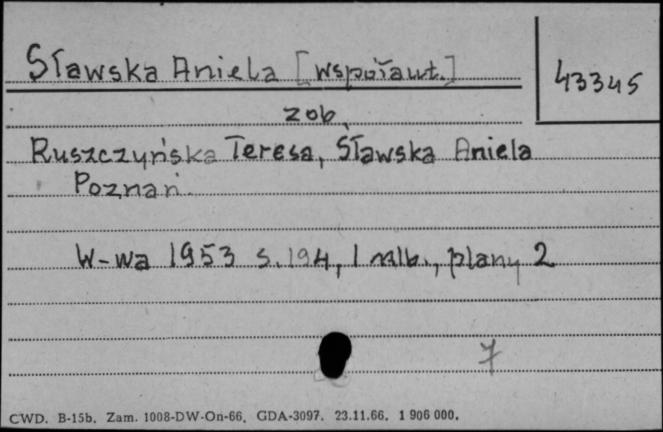 Sławska Aniela [współaut.]
43345
zob.
Ruszczyńska Teresa, Sławska Aniela
Poznań.
W-wa 1953 s. 194, 1 nlb., plany 2
7
CWD. B-15b. Zam. 1008-DW-On-66. GDA-3097. 23.11.66. 1 906 000.